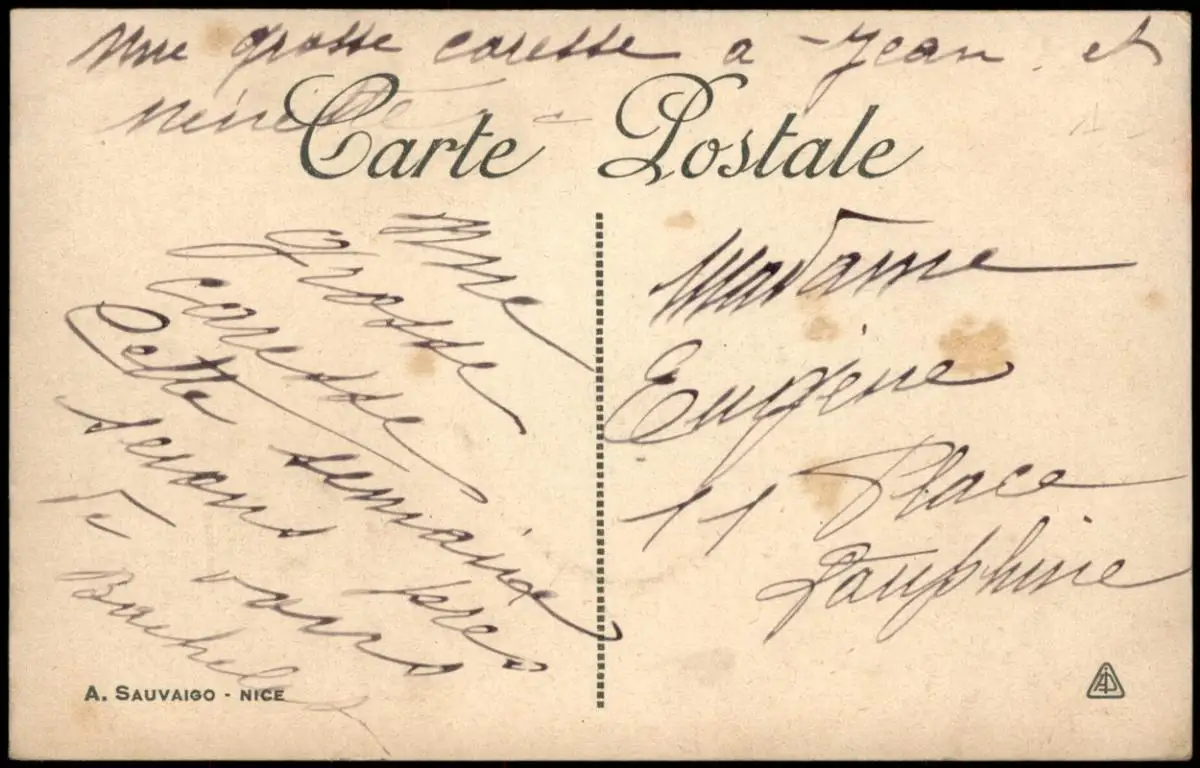 Une grosse caresse a Jean et
Carte Postale
Une
Grosse
caresse
Cette semaine
serons
Madame
Eugène
11 Place
Dauphine
A. SAUVAIGO - NICE